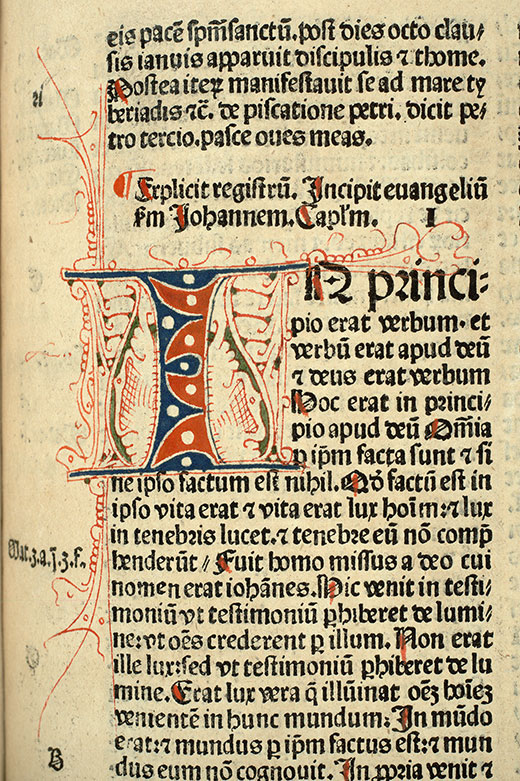 eis pacē spm̄sanctū. post dies octo clau⸗
sis ianuis apparuit discipulis ⁊ thome.
Postea iteꝝ manifestauit se ad mare ty
beriadis ⁊c̄. de piscatione petri. dicit pe⸗
tro tercio. pasce oues meas.
¶ Explicit registrū. Incipit euangeliū
s̄m Johannem. Capl'm. I
IN princi⸗
pio erat verbum. et
verbū erat apud deū
⁊ deus erat verbum
Hoc erat in princi⸗
pio apud deū. Om̄ia
ꝑ ip̄m facta sunt ⁊ si
ne ipso factum est nihil. Qd̄ factū est in
ipso vita erat ⁊ vita erat lux hoīm: ⁊ lux
in tenebris lucet. ⁊ tenebre eū nō comp̄
henderūt⸗ Fuit homo missus a deo cui
Mat.3.a.j.3.f.
nomen erat iohānes. Hic venit in testi⸗
moniū vt testimoniū ꝑhiberet de lumi⸗
ne: vt oēs crederent ꝑ illum. Non erat
ille lux: sed vt testimoniū ꝑhiberet de lu
mine. Erat lux vera q̄ illūinat oēꝫ hoīeꝫ
venientē in hunc mundum. In mūdo
B
erat: ⁊ mundus ꝑ ip̄m factus est: ⁊ mun
dus eum nō cognouit. In ꝓpria venit ⁊